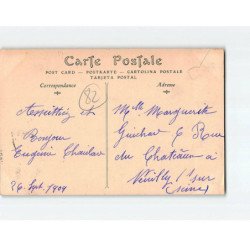 Carte Postale
POST CARD - POSTKARTE - CARTOLINA POSTALE
TARJETA POSTAL
Correspondance
Adresse
82
Amitiés et
Bonjour
Eugénie
26 Sept. 1904
Mlle Marguerite
6 Rue
du Château à
Neuilly s/ sur
(Seine)